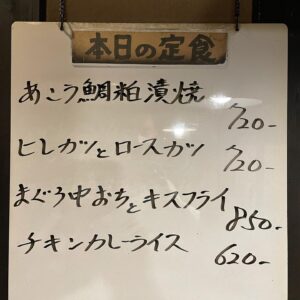 本日の定食
あこう鯛粕漬焼
720-
ヒレカツとロースカツ
720-
まぐろ中おちとキスフライ
850-
チキンカレーライス
620-